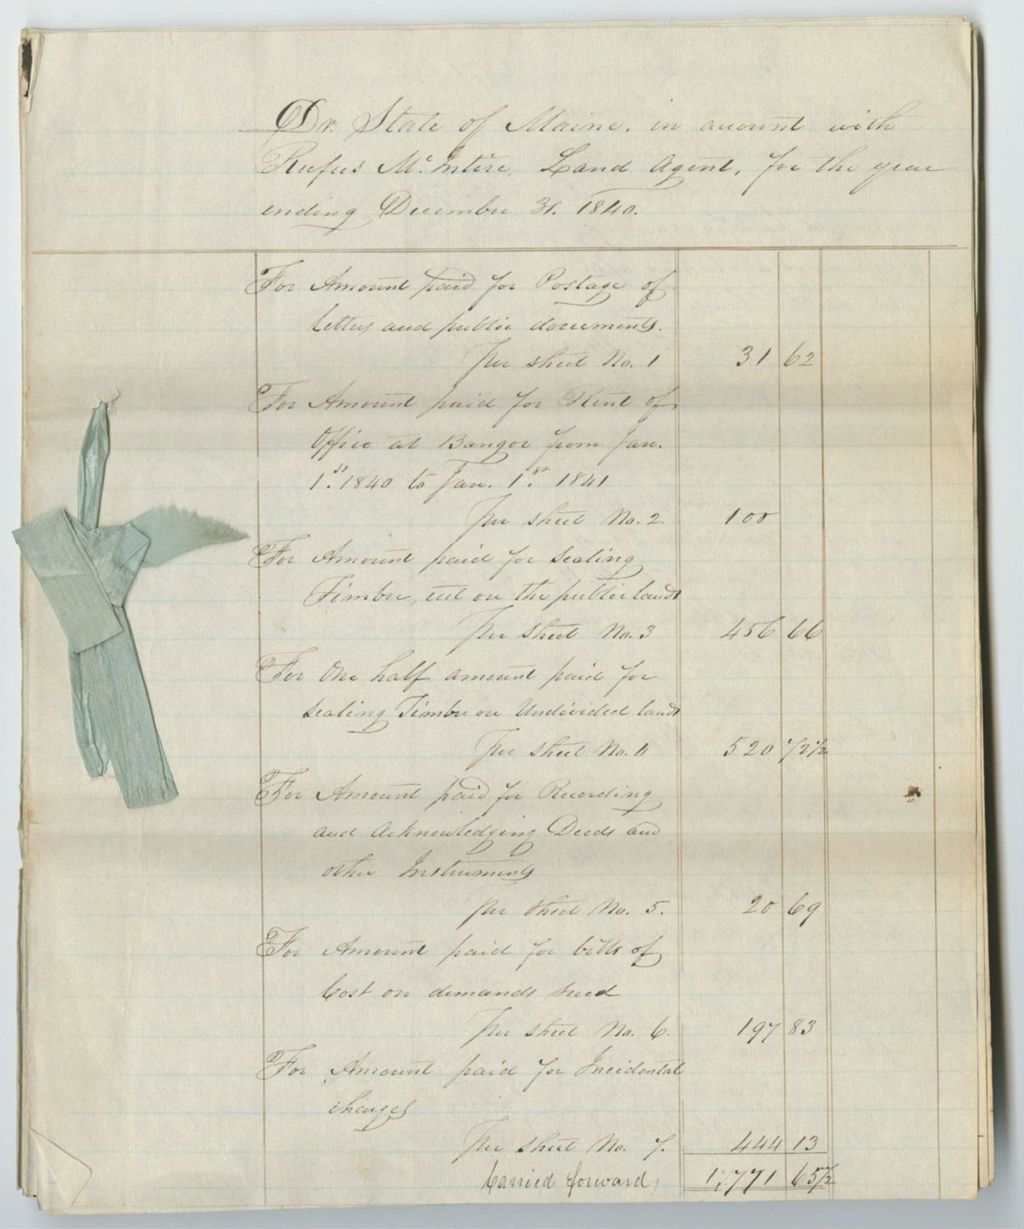 Dr. State of Maine. in account with
Rufus McIntire, Land Agent, for the year
ending December 31. 1840.
For Amount paid for Postage of
letters and public documents.
Per sheet No. 1 31 62
For Amount paid for Rent of
Office at Bangor from Jan.
1st. 1840 to Jan. 1st. 1841
Per sheet No. 2. 100
For Amount paid for scaling
Timber, cut on the public lands
Per sheet No. 3 456 66
For One half amount paid for
scaling Timber on Undivided lands
Per sheet No. 4 520 72½
For Amount paid for Recording
and Acknowledging Deeds and
other Instruments
per sheet No. 5. 20 69
For Amount paid for bills of
Cost on demands sued
Per sheet No. 6. 197 83
For Amount paid for Incidental
charges
Per sheet No. 7. 444 13
Carried forward, 1,771 65½